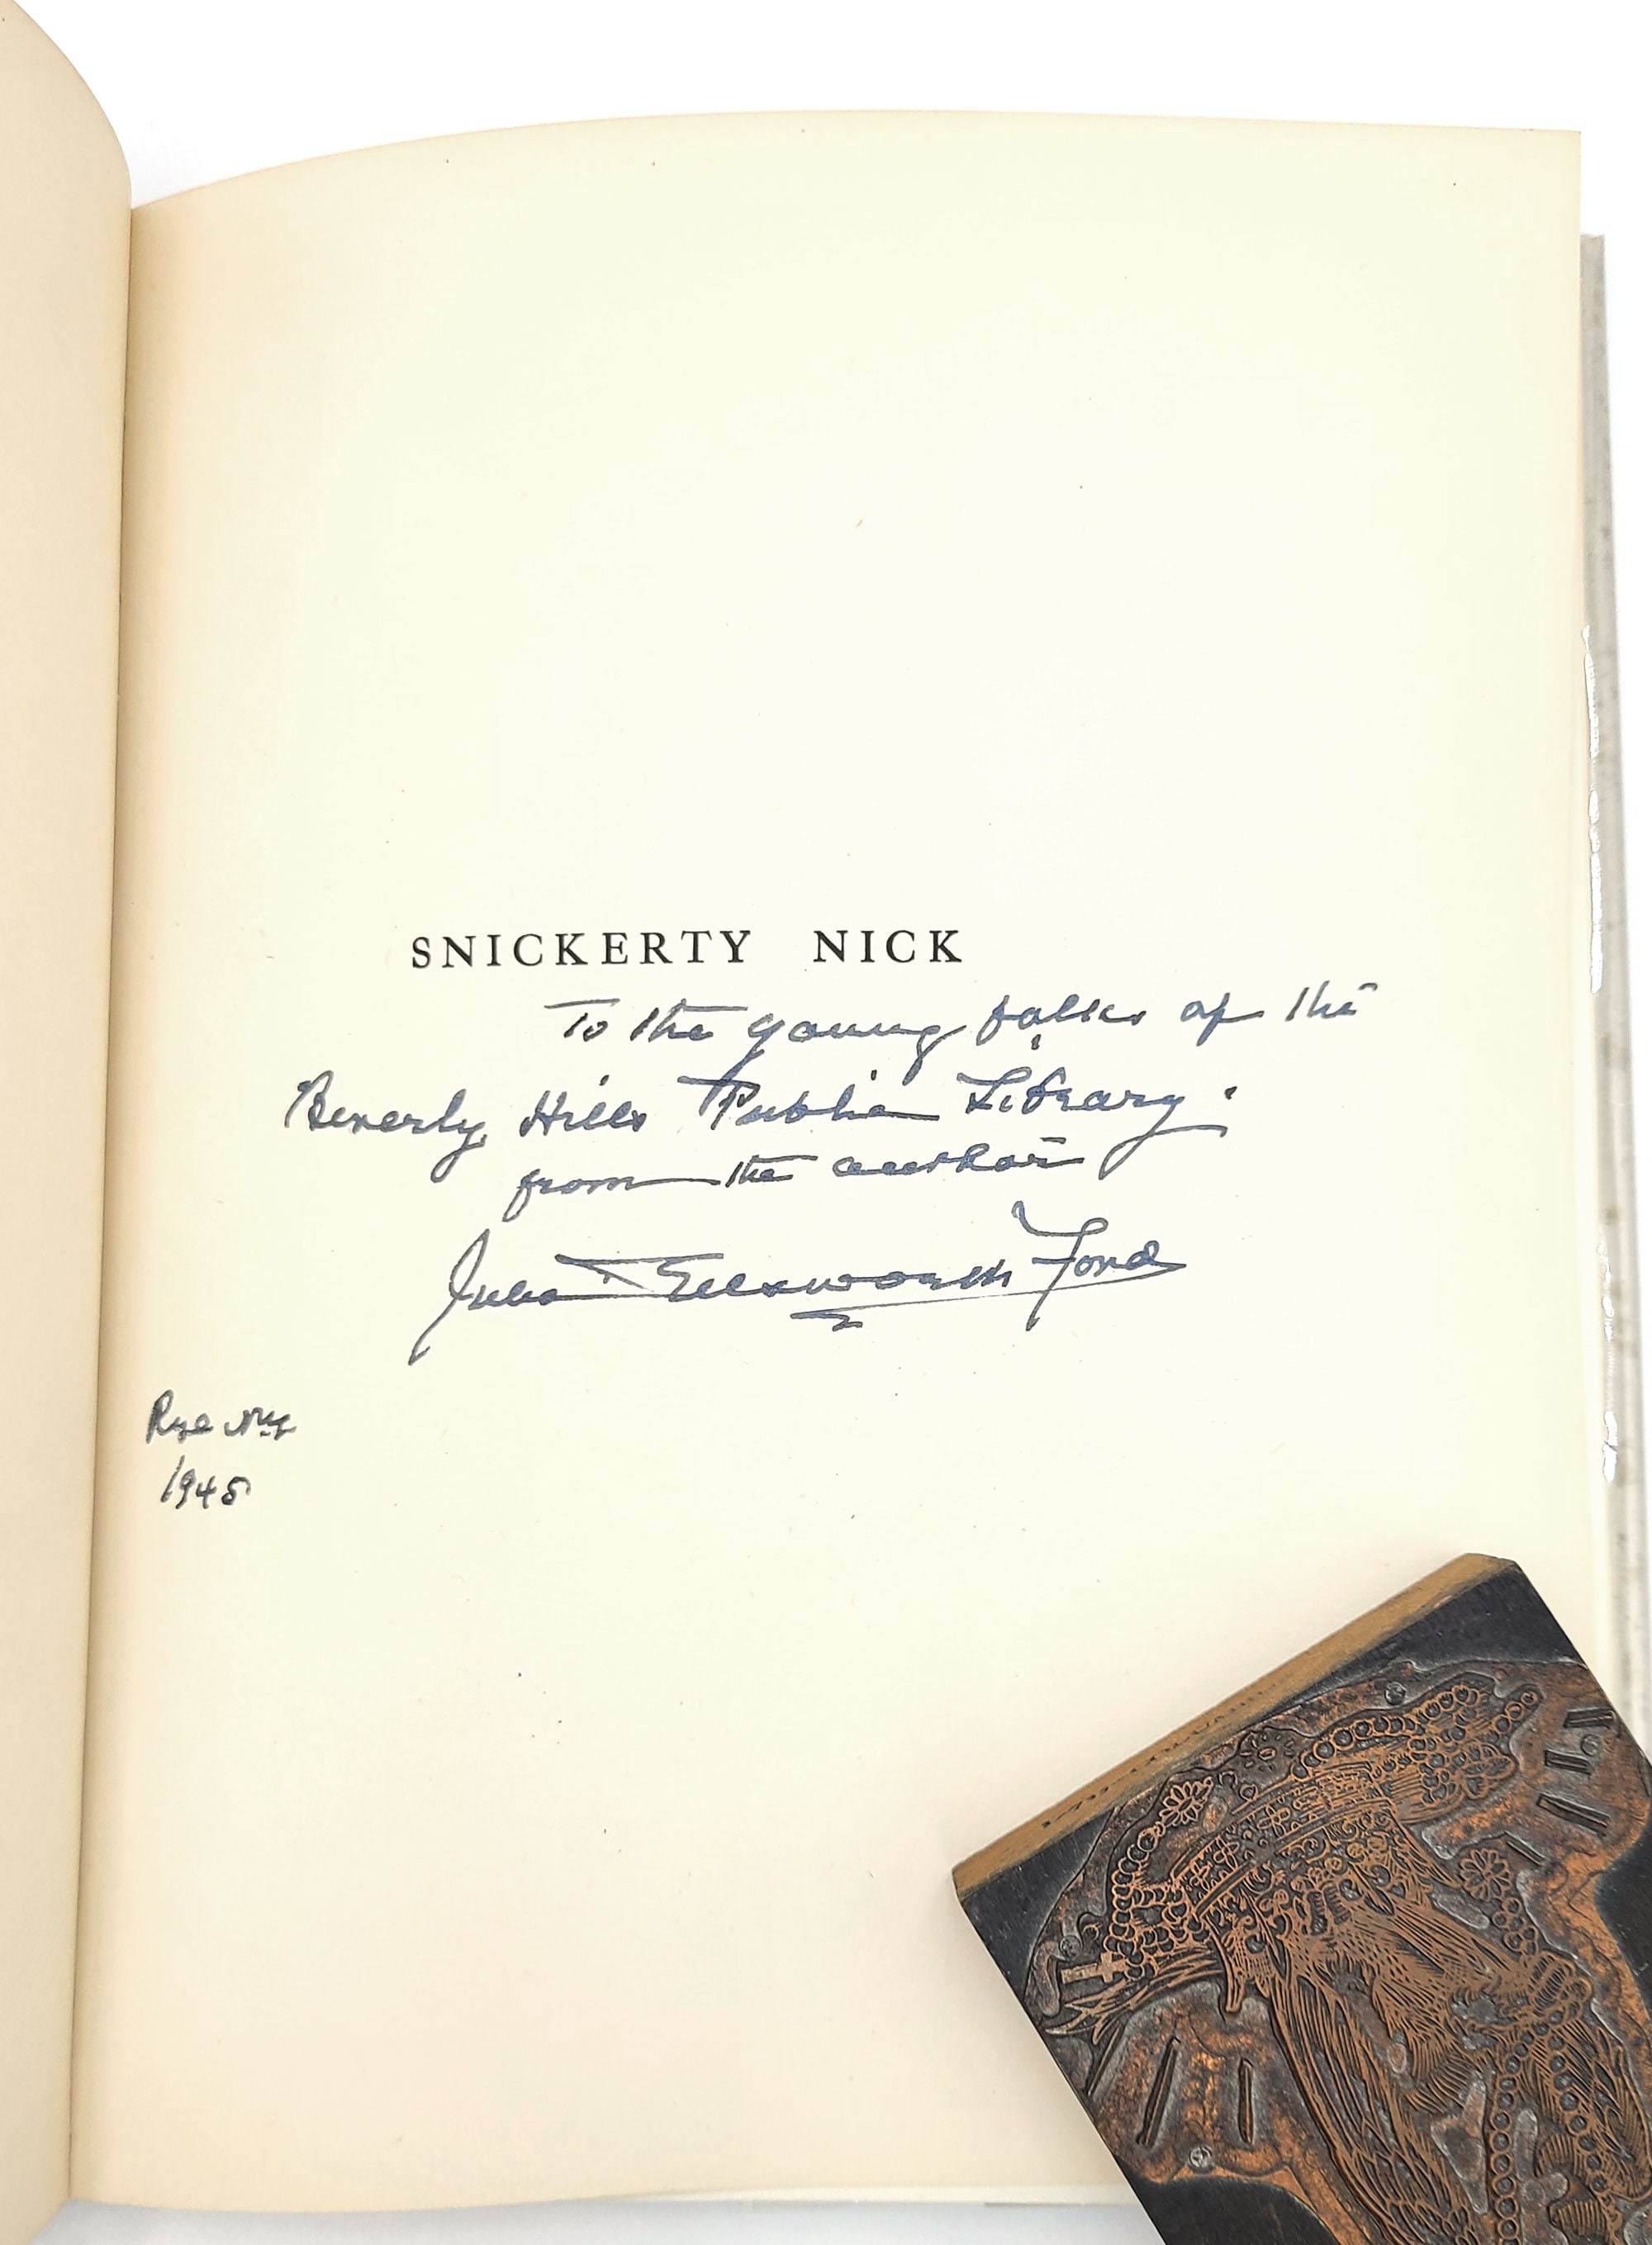 SNICKERTY NICK
To the young folks of the
Beverly Hills Public Library.
from the author
Julia Ellsworth Ford
Rye N.Y.
1945